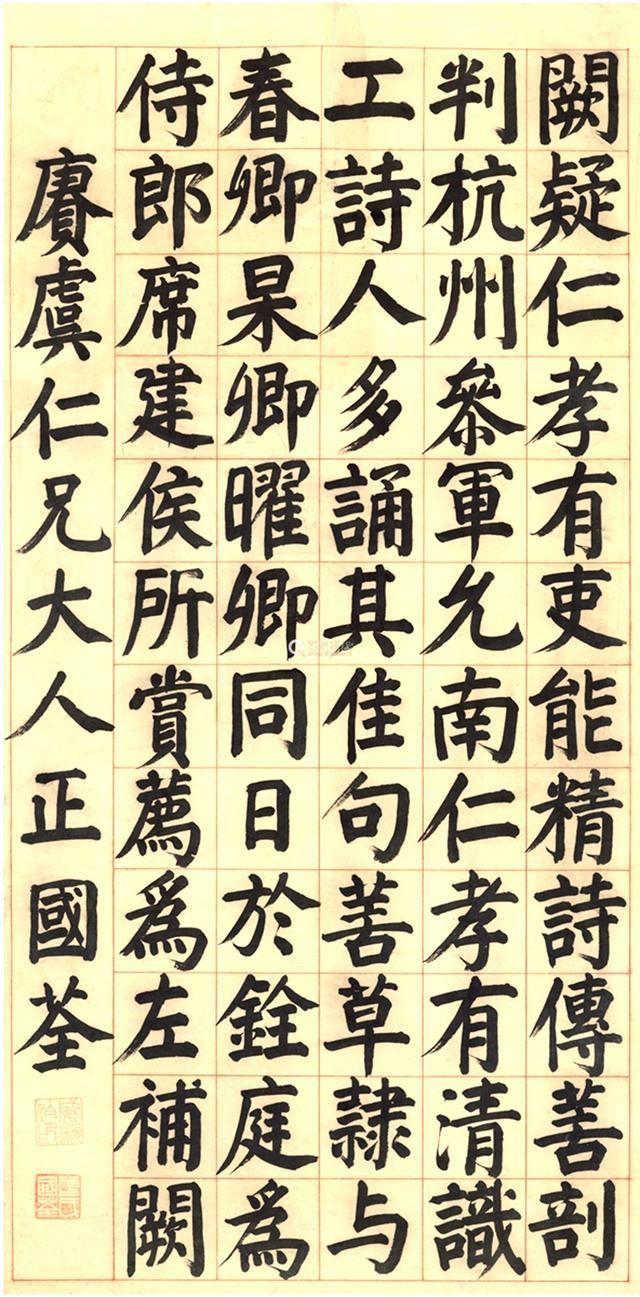 闕疑仁孝有吏能精詩傳善剖
判杭州參軍允南仁孝有清識
工詩人多誦其佳句善草隷与
春卿杲卿曜卿同日於銓庭爲
侍郎席建侯所賞薦爲左補闕
賡虞仁兄大人正國荃